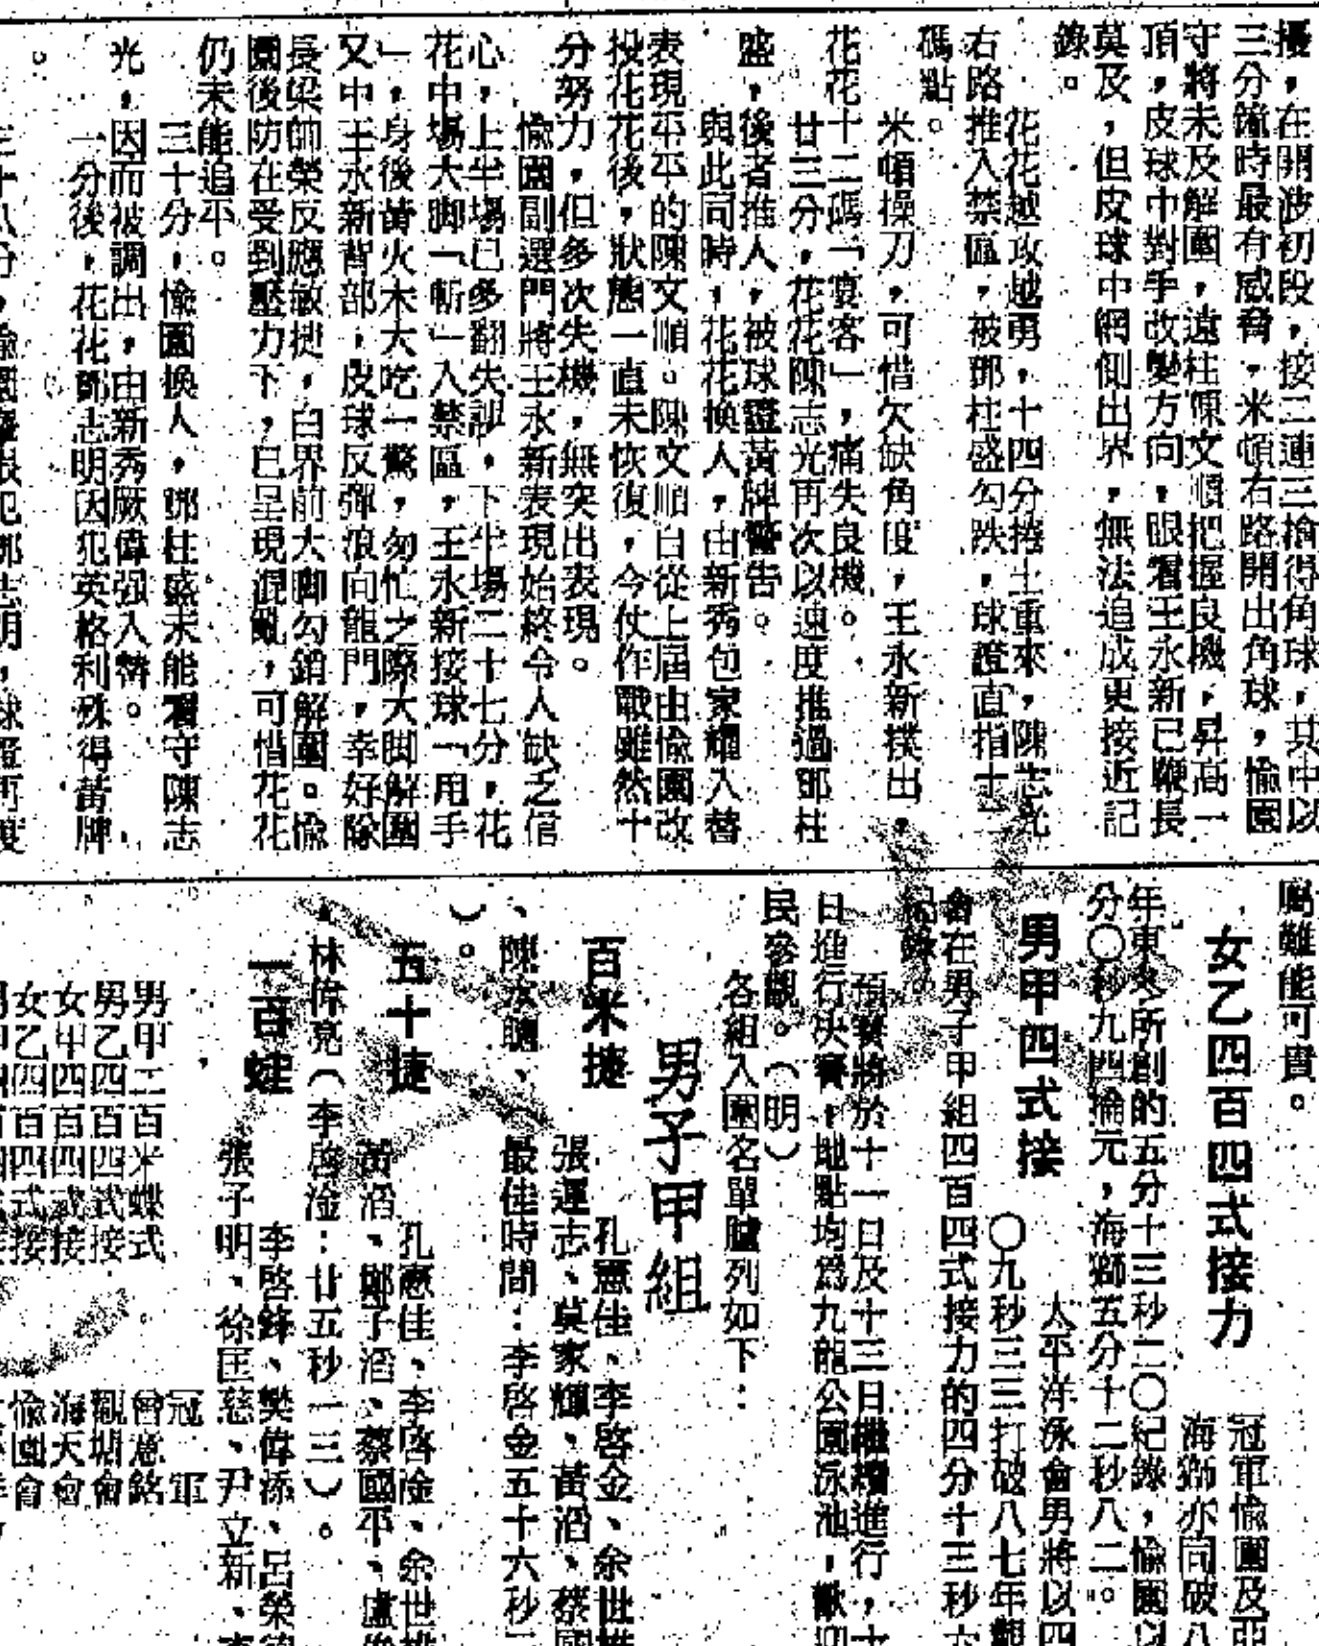 擾，在開波初段，接二連三搶得角球，其中以
三分鐘時最有威脅，米頓右路開出角球，愉園
守將未及解圍，遠柱陳文順把握良機，昇高一
頂，皮球中對手改變方向，眼看王永新已鞭長
莫及，但皮球中網側出界，無法追成更接近記
錄。
花花越攻越勇，十四分捲土重來，陳志光
右路推入禁區，被鄧柱盛勾跌，球證直指十二
碼點。
米頓操刀，可惜欠缺角度，王永新撲出，
花花十二碼「宴客」，痛失良機。
廿三分，花花陳志光再次以速度推過鄧柱
盛，後者推人，被球證黃牌警告。
與此同時，花花換人，由新秀包家耀入替
表現平平的陳文順。陳文順自從上屆由愉園改
投花花後，狀態一直未恢復，今仗作戰雖然十
分努力，但多次失機，無突出表現。
愉園副選門將王永新表現始終令人缺乏信
心，上半場已多翻失誤，下半場二十七分，花
花中場大脚「斬」入禁區，王永新接球「用手
」，身後黃火木大吃一驚，匆忙之際大脚解圍
又中王永新背部，皮球反彈浪向龍門，幸好隊
長梁帥榮反應敏捷，白界前大脚勾銷解圍。愉
園後防在受到壓力下，已呈現混亂，可惜花花
仍未能追平。
三十分，愉園換人，鄧柱盛未能看守陳志
光，因而被調出，由新秀厥偉强入替。
一分後，花花鄧志明因犯英格利殊得黃牌
。
屬難能可貴。
女乙四百四式接力
冠軍愉園及亞
海獅亦同破八
年東太所創的五分十三秒二〇紀錄，愉園以
分〇秒九四掄元，海獅五分十二秒八二。
男甲四式接
太平洋泳會男將以四
〇九秒三三打破八七年觀
會在男子甲組四百四式接力的四分十三秒六
紀錄。
預賽將於十一日及十三日繼續進行，十
日進行决賽，地點均爲九龍公園泳池，歡迎
民參觀。（明）
各組入圍名單臚列如下：
男子甲組
百米捷
孔憲佳、李啓金、余世維
張運志、莫家輝、黃滔、蔡國
、陳汝聰、（最佳時間：李啓金五十六秒
）。
五十捷
孔憲佳、李啓淦、余世維
黃滔、鄭子滔、蔡國平、盧
、林偉亮（李啓淦：廿五秒一三）。
一百蛙
李啓鋒、樊偉添、呂榮
張子明、徐匡慈、尹立新、
冠軍
男甲二百米蝶式 曾憲銘
男乙四百四式接 觀塘會
女甲四百四式接 海天會
女乙四百四式接 愉園會